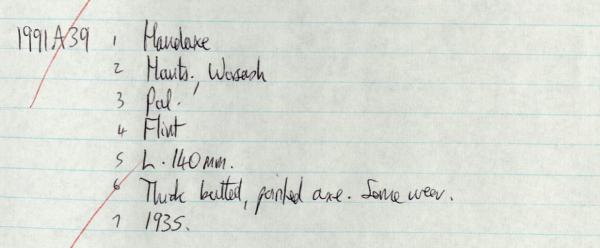 1991A39 1 Handaxe
2 Hants., Warsash
3 Pal.
4 Flint
5 L. 140mm.
6 Thick butted, pointed axe. Some wear.
7 1935.